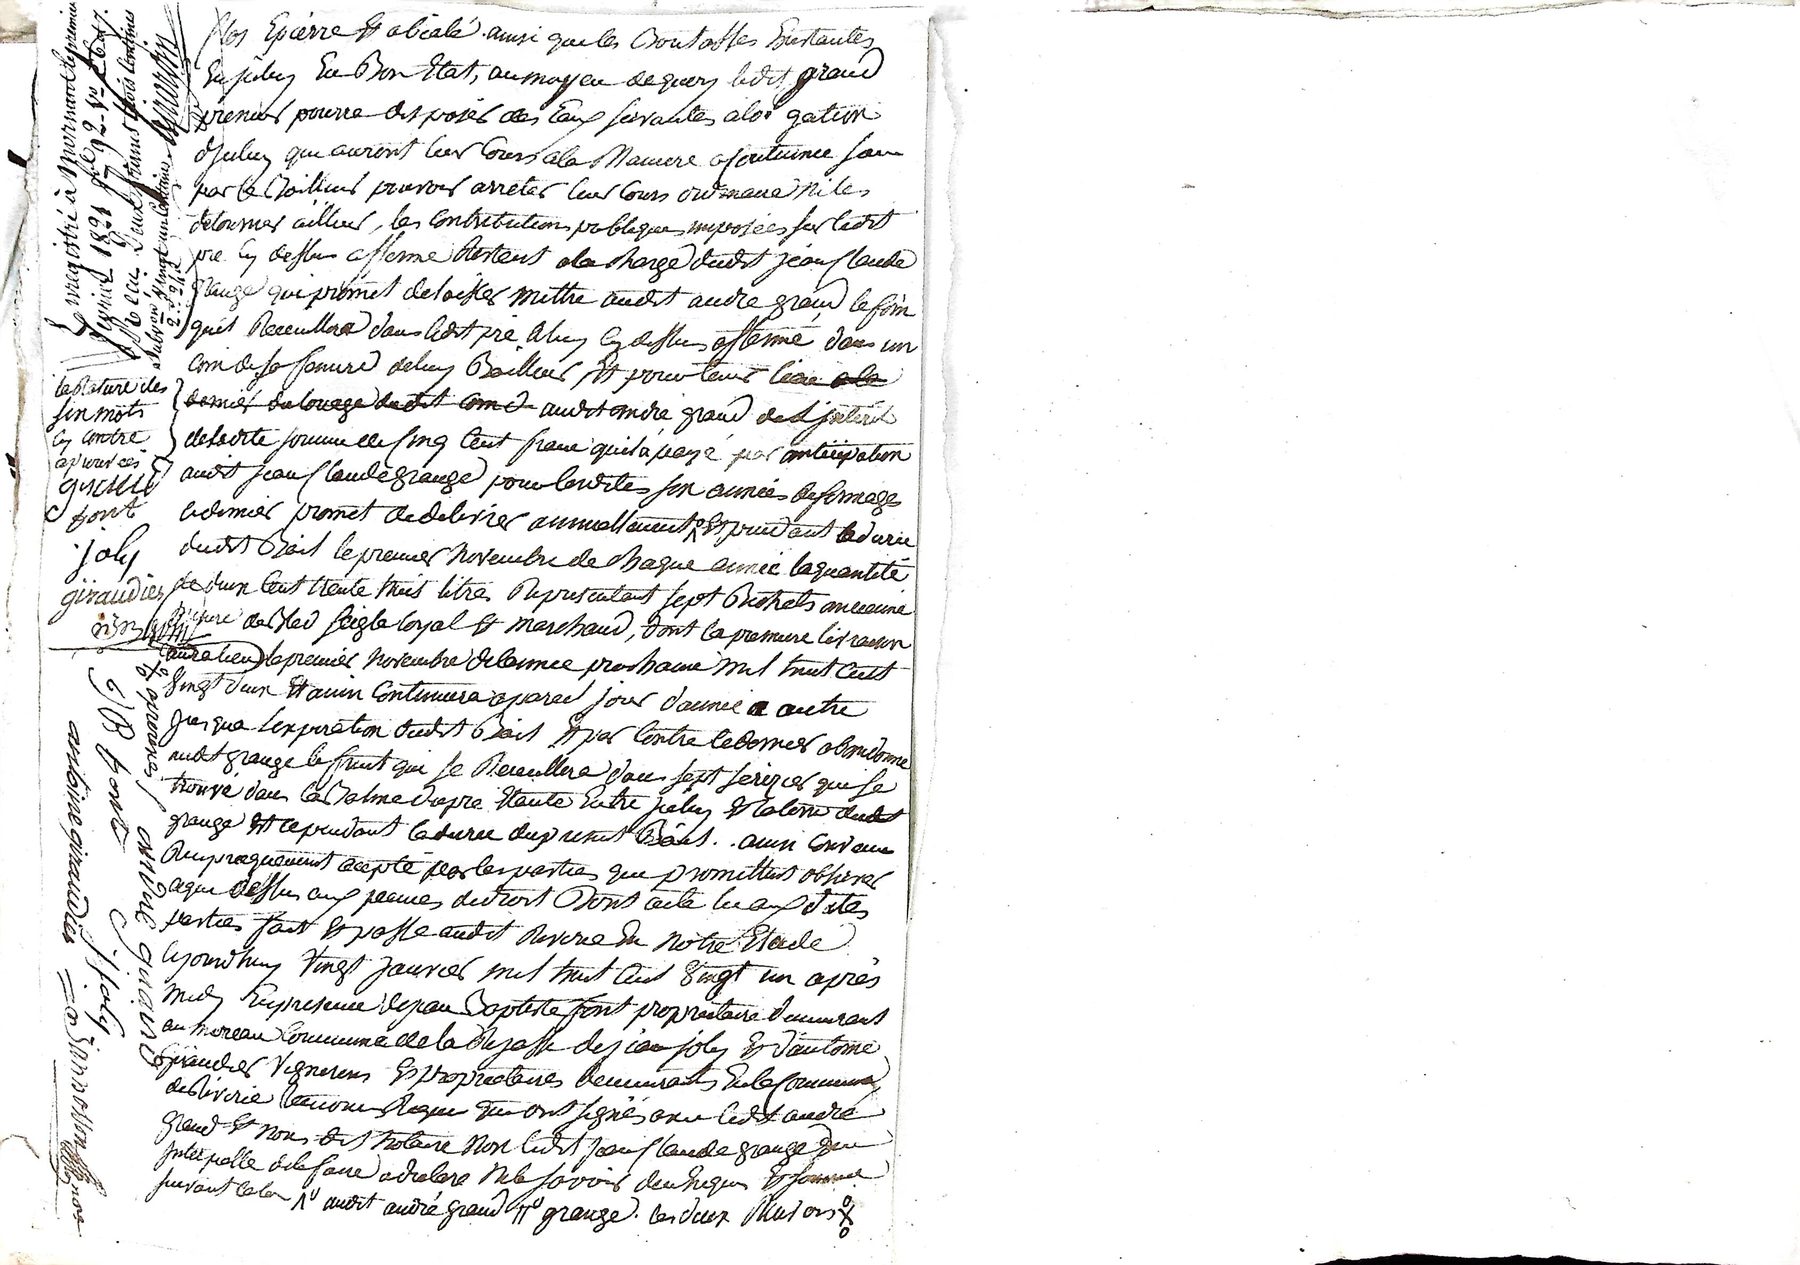 ainsi que les Boutasses Existantes
En jceluy En Bon Etat, au moyen de quoy ledit grand
prenier pourra disposer des Eaux servantes
djceluy qui auront leur Cours a la Maniere acoutumee sans
par le Bailleur pouvoir arreter leur Cours ordinaire ni les
detourner ailleur, les Contributions publiques imposées sur ledit
pré Cy dessus afferme Restent a la Charge dudit jean Claude
grange qui promet de laisser mettre audit andre grand le foin
quil Receuillera dans ledit pré a luy Cy dessus affermé dans un
coin de sa feniere deluy Bailleur, Et pour tenir lieu a la
dernier du louage dudit Coin audit andre grand de L'jnteret
deladite somme de Cinq Cent franc quil a payé par anticipation
audit jean Claude grange pour lesdites six années de fermage
ce dernier promet de delivrer annuellement Et pendant la durée
dudit Bail le premier Novembre de Chaque année la quantité
de deux Cent trente trois litres Representant sept Bichets ancienne
mesure de Bled seigle loyal Et marchand, dont la premiere livraison
aura lieu le premier Novembre de l'année prochaine mil huit Cent
Vingt deux Et ainsi Continuera a pareil jour d'année a autre
jusqua l'expiration dudit Bail Et par Contre ce dernier abandonne
audit grange le fruit qui se Receuillera dans sept serizier qui se
trouve dans la Balme Etante Entre jceluy Et la terre dudit
grange Et ce pendant la durée du present Bail. ainsi Convenu
Reciproquement accepté par les parties qui promettent observer
ce que dessus aux peines de droit Dont acte lu aux dites
parties fait Et passé audit Riverie En Notre Etude
Cejourdhuy Vingt Janvier mil huit Cent Vingt un après
midy En presence de jean Baptiste font proprietaire demeurant
au moreau Commune de la de jean joly Et d'antoine
giraudier Vignerons Et proprietaires demeurants En la Commune
de Riverie temoins Requis qui ont signés avec ledit andre
grand Et Nous dit Notaire Non ledit jean Claude grange qui
jnterpellé de le faire a declaré Ne le savoir de ce Enquis Et sommé
suivant la loi audit andré grand grange. les deux
Enregistré à Mornant le premier
fevrier 1821 fol 92
Reçu deux francs trois Centimes
la Rature des
six mots
Cy Contre
aprouvée
grand
font
joly
giraudier
approuvés
andré grand
JB font
J joly
antoine giraudier